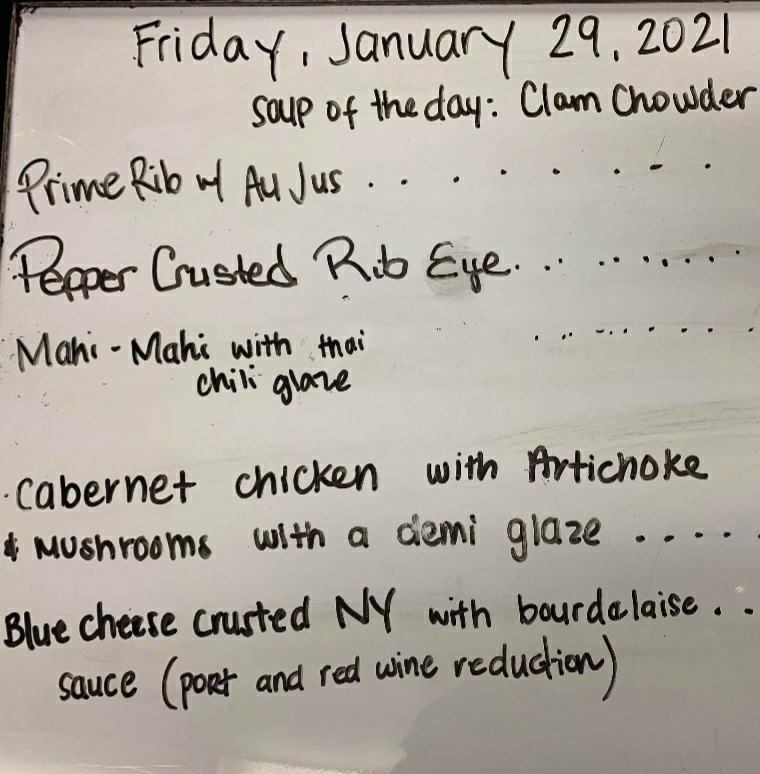 Friday, January 29, 2021
Soup of the day: Clam Chowder
Prime Rib w/ Au Jus . . . . . . . .
Pepper Crusted Rib Eye. . . . . . . . . . .
Mahi - Mahi with thai . . . . . . . . .
chili glaze
. Cabernet chicken with Artichoke
& Mushrooms with a demi glaze . . . . .
Blue cheese crusted NY with bourdalaise . .
sauce (port and red wine reduction)